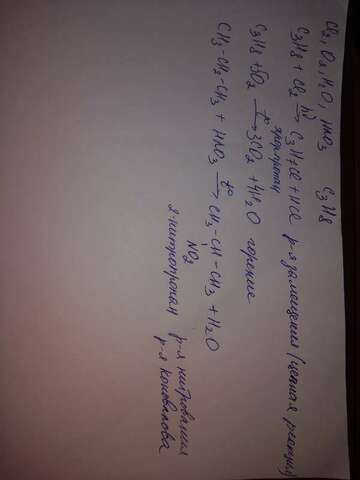 Cl2, O2, H2O, HNO3 C3H8
C3H8 + Cl2 hν→ C3H7Cl + HCl р-я замещения (цепная реакция)
хлорпропан
C3H8 + 5O2 t°→ 3CO2 + 4H2O горение
CH3-CH2-CH3 + HNO3 t°→ CH3-CH-CH3 + H2O
NO2
2-нитропропан р-я нитрования
р-я Коновалова